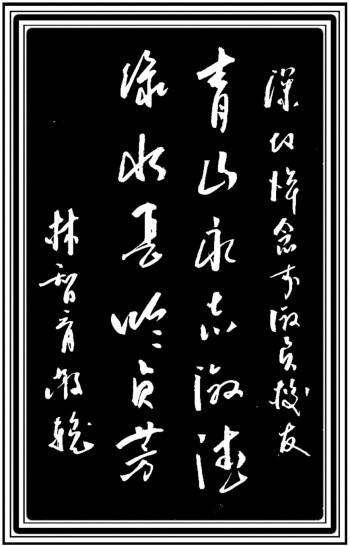 深切悼念淑贞校友
青山永志淑德
绿水長吟贞芳
林智育敬輓